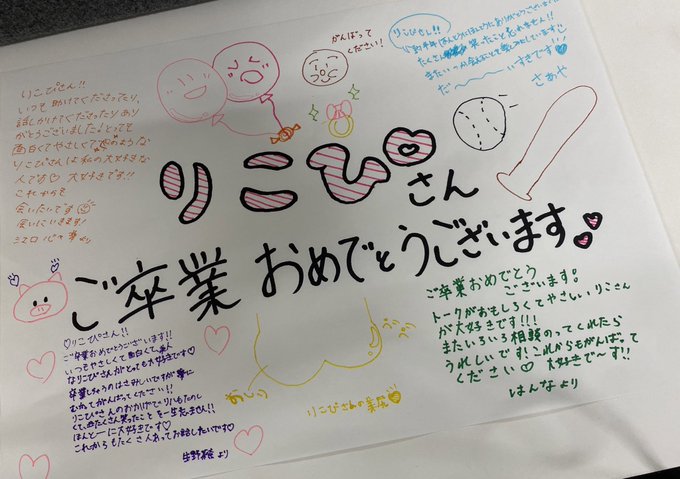 りこぴさん!!
いつも助けてくださったり、
話しかけてくださったりあり
がとうございました♪とっても
面白くてやさしくて
りこぴさんは私の大好きな
人です♡ 大好きです!!
これからも
会いたいです
会いにいきます!
より
がんばって
ください!
りこぴさん!!
たくさん笑ったこと忘れません!!
だ〜〜〜いすきです!!♡
さあや
りこぴさん
ご卒業おめでとうございます
♡りこぴさん!!
ご卒業おめでとうございます!!
いつもやさしくて面白くて美人
なりこぴさんがとっても大好きです♡
卒業しちゃうのはさみしいですが
がんばってください!!
りこぴさんのおかげで
たくさん笑ったことを一生忘れません!!
ほんと一に大好きです♡
これからもたくさん会ってお話したいです♡
より
おしり
プリ
プリ
りこぴさんの美尻
ご卒業おめでとう
ございます。
トークがおもしろくてやさしいりこさん
が大好きです!!!
またいろいろ相談のってくれたら
うれしいです!これからもがんばって
ください♡ 大好で〜す!!
はんなより